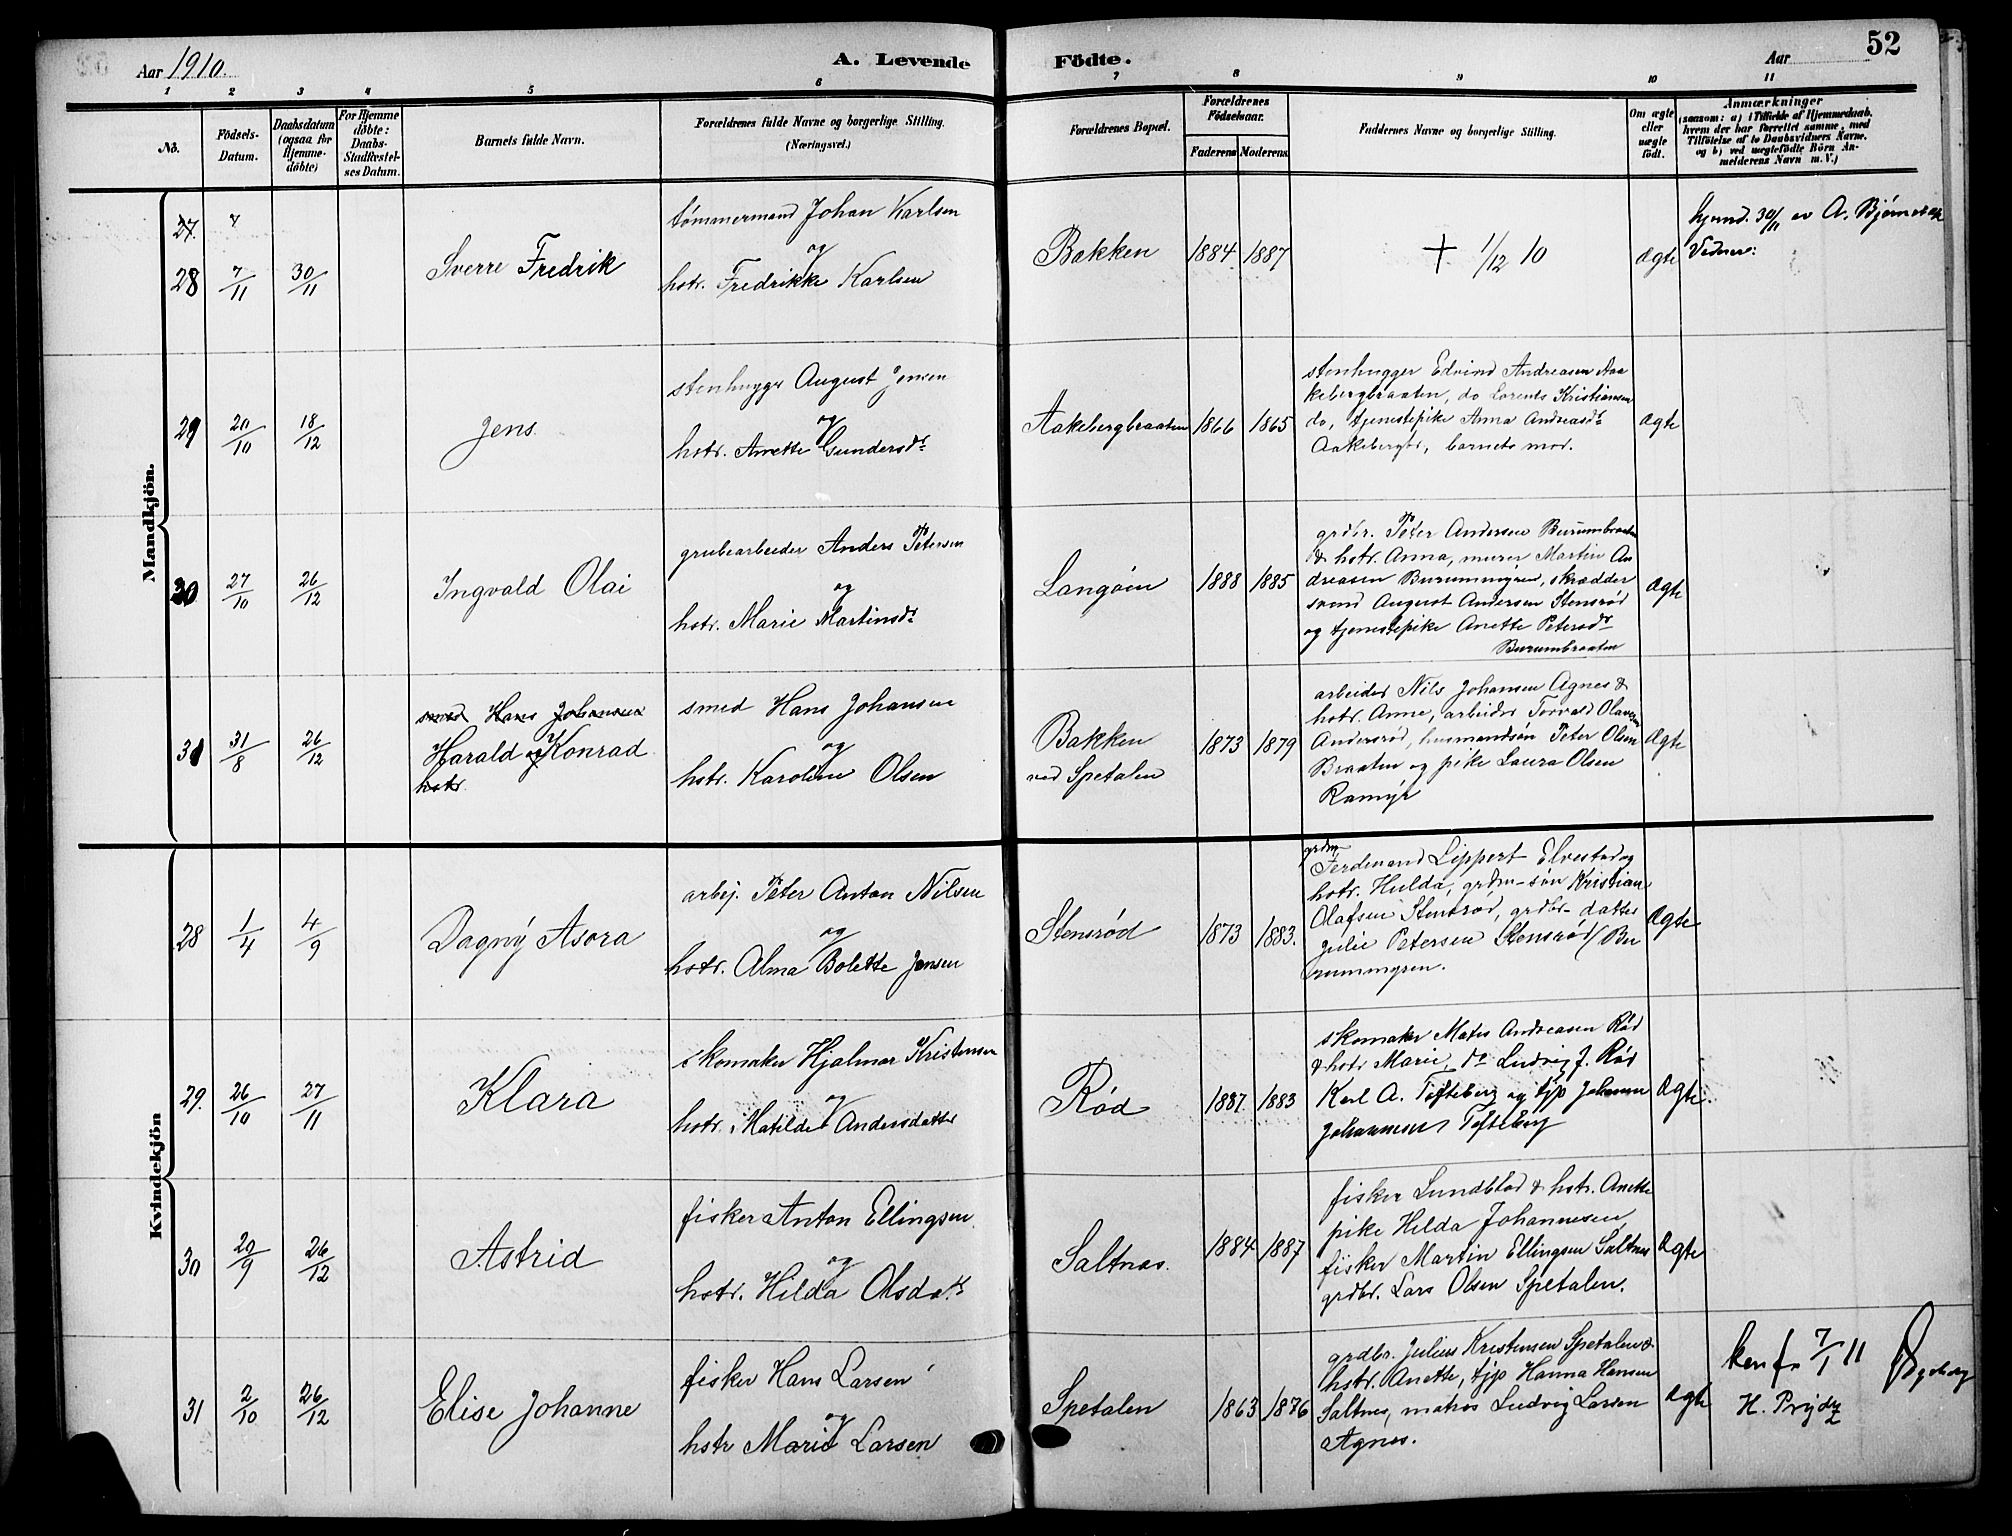 Aar 1910.
A. Levende Födte.
Aar
52
1 2 3 4 5 6 7 8 9 10 11
No.
Födsels-Datum.
Daabsdatum (ogsaa for Hjemme-döbte)
For Hjemme döbte: Daabs-Stadfæstel-ses Datum.
Barnets fulde Navn.
Forældrenes fulde Navne og borgerlige Stilling.
(Næringsvei.)
Forældrenes Bopæl.
Forældrenes Födselsaar.
Faderens Moderens
Faddernes Navne og borgerlige Stilling.
Om ægte eller uægte födt.
Anmærkninger
(saasom: a) i Tilfælde af Hjemmedaab,
hvem der har forrettet samme, med
Tilföielse af to Daabsvidners Navne.
og b) ved uægtefödte Börn An-
melderens Navn m. V.)
Mandkjön.
27. 7
28 7/11 30/11
Sverre Fredrik
tömmermand Johan Karlsen
og
hstr. Fredrikke Karlsen
Bakken
1884 1887
+ 1/12 10
ægte
hjemd. 30/11 av A. Bjørnebek
Vidner:
29 20/10 18/12
Jens
stenhugger August Jensen
og
hstr. Anette Gundersdr
Aakebergbraaten
1866 1865
stenhugger Edvind Andreasen Aa
kebergbraaten, do Lorents Kristiansen
do, tjenestepike Anna Andreasdr
Aakeberget, barnets mor.
ægte
30 27/10 26/12
Ingvald Olai
grubearbeider Anders Petersen
og
hstr. Marie Martinsdr
Langøin
1888 1885
grdbr. Peter Andersen Burumbraaten
& hstr. Anna, murer Martin An
dreasen Burummyren, skrædder
svend August Andersen Stensrød
og tjenestepike Anette Petersdr
Burumbraaten
ægte
31 31/8 26/12
smed Hans Johansen
Harald og Konrad
hstr.
smed Hans Johansen
og
hstr. Karoline Olsen
Bakken
ved Spetalen
1873 1879
arbeider Nils Johansen Agnes &
hstr. Anne, arbeider Torvald Olavsen
Andersrød, husmandsøn Peter Olsen
Braaten og pike Laura Olsen
Ramyr
ægte
Kvindekjön
28 1/4 4/9
Dagny Asora
arbej. Peter Anton Nilsen
og
hstr. Alma Bolette Jensen
Stensrød
1873 1883.
grdm
Ferdinand Lippert Elvestad og
hstr. Hulda, grdm-søn Kristian
Olafsen Stensrød, grdbr-datter
Julie Petersen Stensrød/Bu
rummyren.
ægte
29. 26/10 27/11
Klara
skomaker Hjalmar Kristensen
og
hstr. Matilde Andersdatter
Rød
1887 1883
skomaker Mats Andreasen Rød
& hstr Marie, do Ludvig J. Rød
Karl A. Tofteberg og tjp Johanne
Johannesen Tofteberg
ægte.
30 20/9 26/12
Astrid
fisker Anton Ellingsen
og
hstr. Hilda Olsdatr
Saltnæs.
1884 1887
fisker Lundblad & hstr. Anette
pike Hilda Johannesen
fisker Martin Ellingsen Saltnes
grdbr. Lars Olsen Spetalen.
ægte
31 2/10 26/12
Elise Johanne
fisker Hans Larsen
og
hstr Marie Larsen
Spetalen
1863 1876
grdbr. Julius Kristensen Spetalen &
hstr. Anette, tjp Hanna Hansen
Saltnes, matros Ludvig Larsen
Agnes.
ægte
7/1 11
H. Prydz